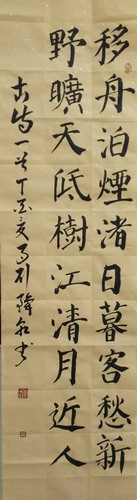 移舟泊煙渚日暮客愁新
野曠天低樹江清月近人
古詩一首丁酉之夏月